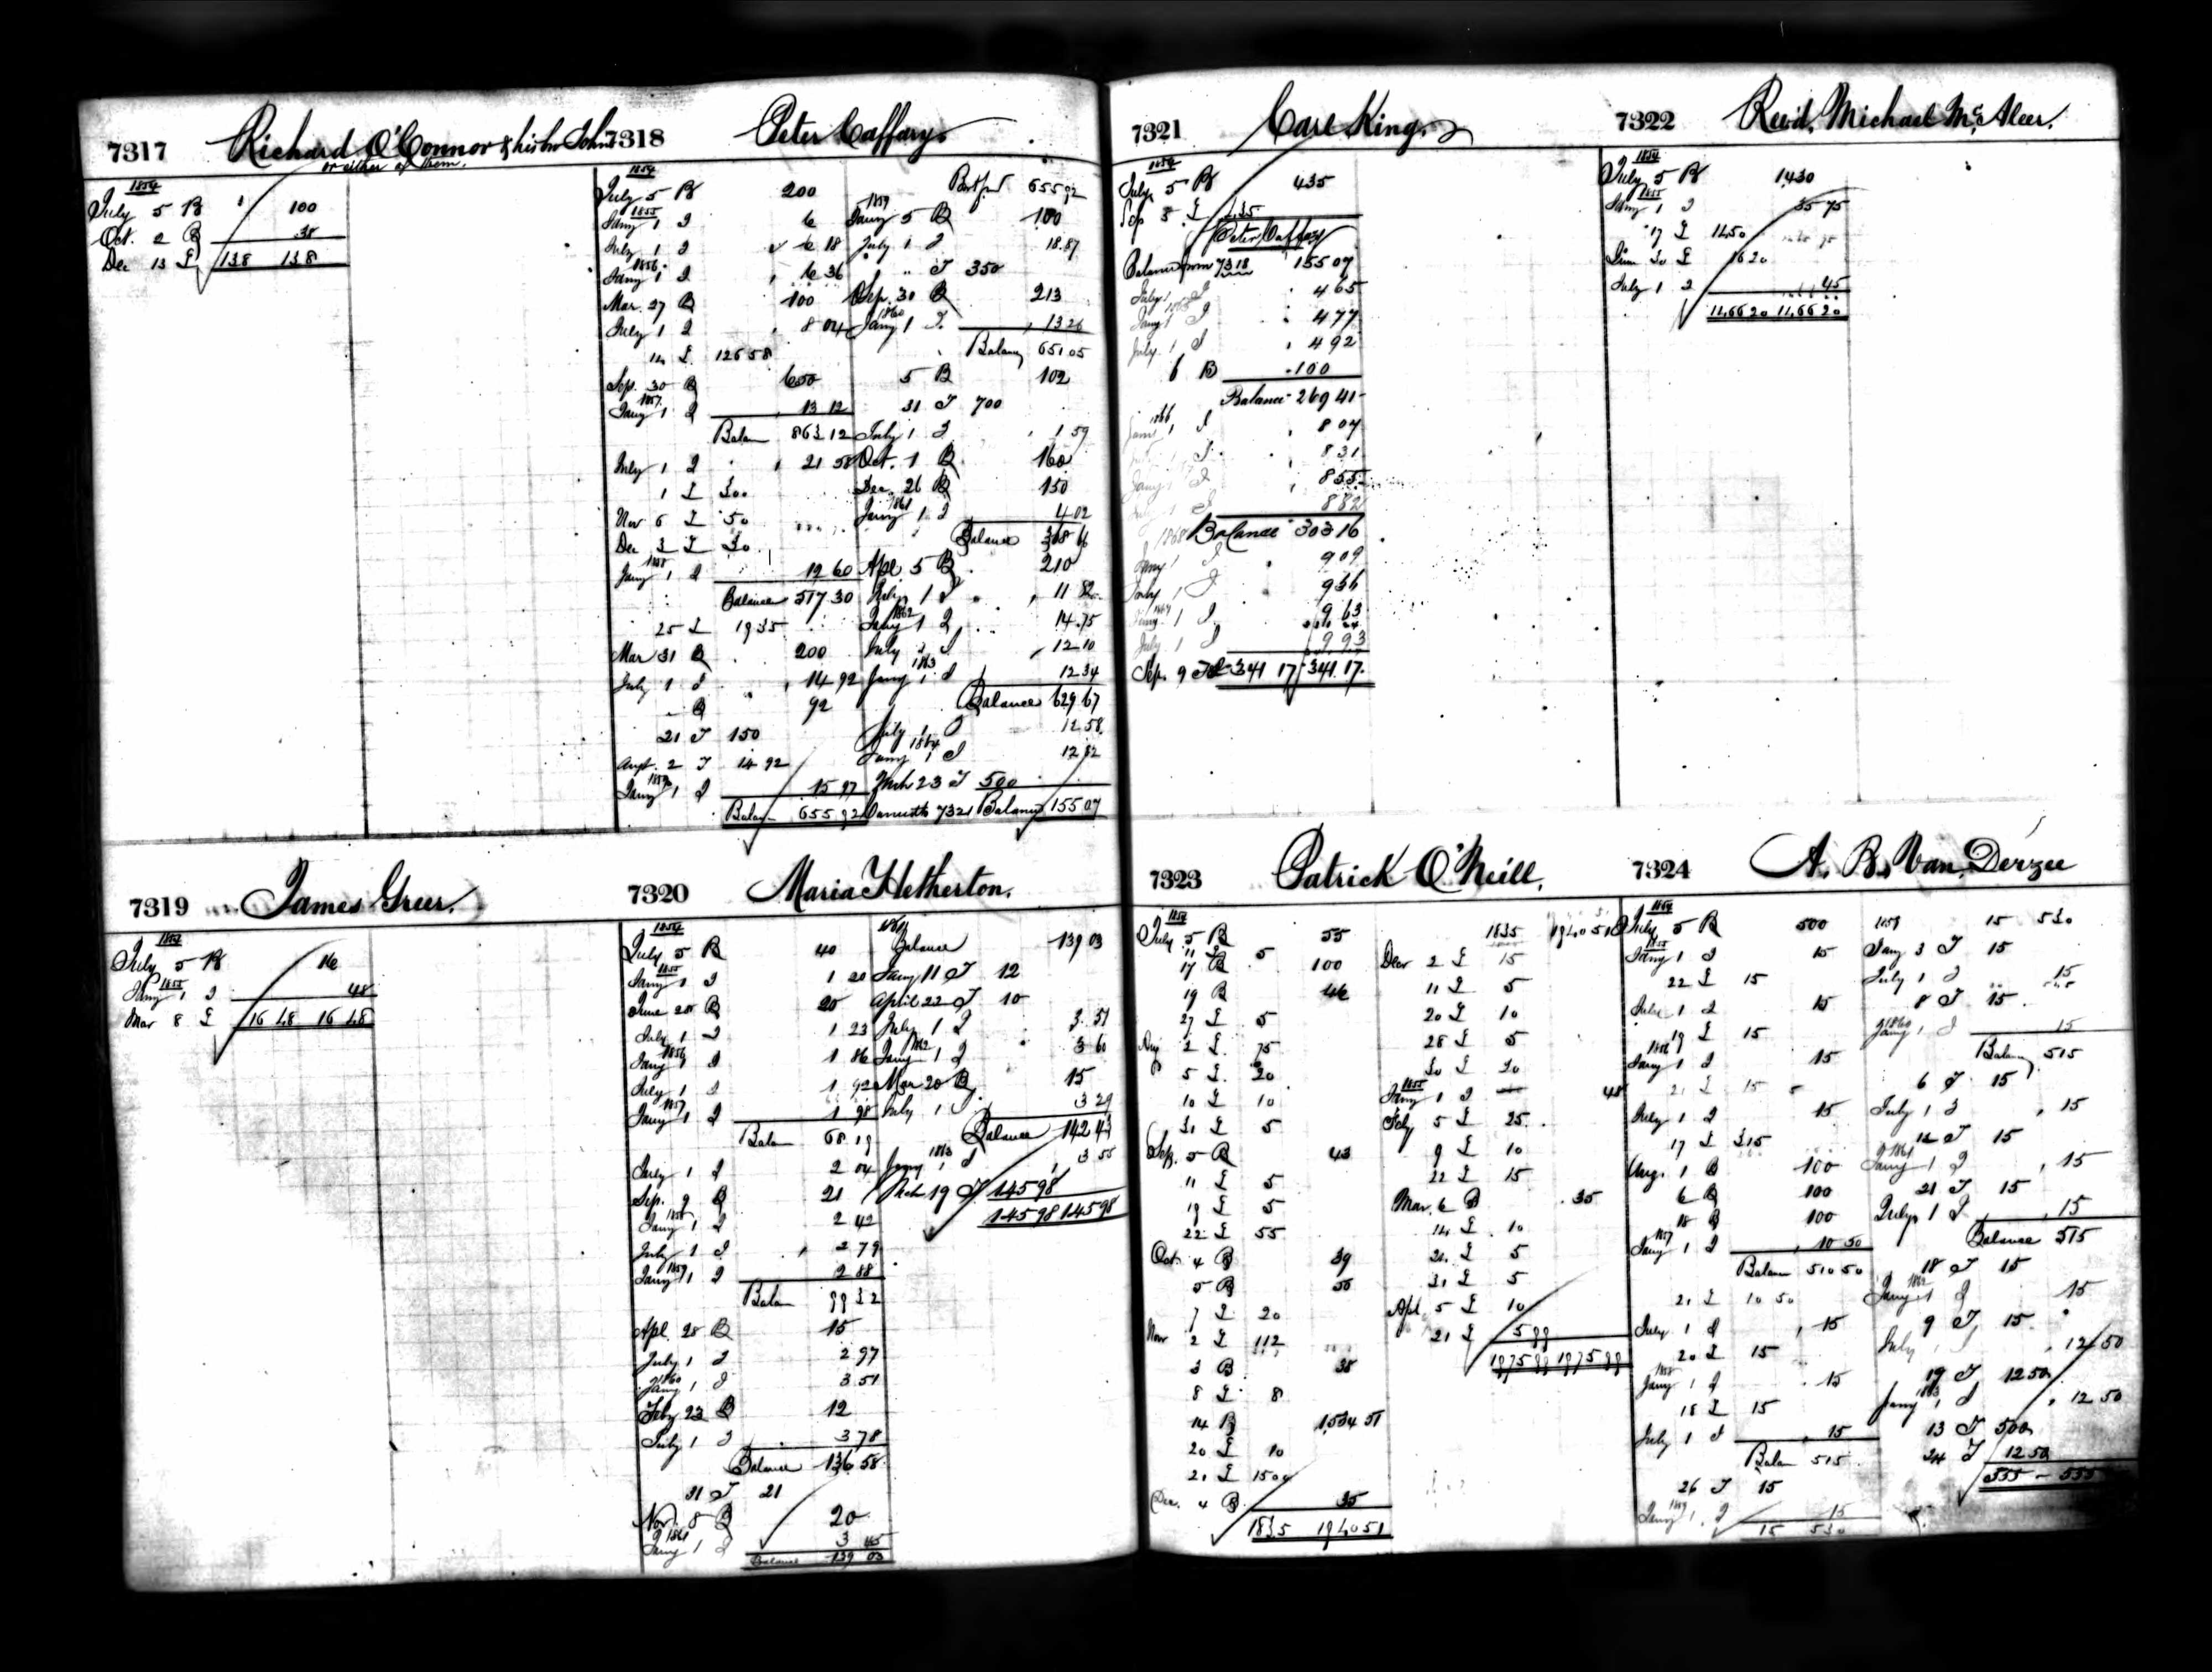 7317 Richard O'Connor & his bro John
or either of them.
1854
July 5 B 100
Oct. 2 B 38
Dec 13 L 138 138
7318 Peter Caffary
1854
July 5 B 200
1855
Jany 1 I 6
July 1 I 6 18
1856
Jany 1 I 6 36
Mar. 27 B 100
July 1 I 8 04
14 L 126 58
Sep. 30 B 650
1857
Jany 1 I 13 12
Balan 863 12
July 1 I 21 58
1 L 300
Nov 6 L 50
Dec 3 L 30
1858
Jany 1 I 12 60
Balance 517 30
25 L 19 35
Mar 31 B 200
July 1 I 14 92
" B 92
21 T 150
Augt. 2 T 14 92
1859
Jany 1 I 15 97
Balan 655 92
Bot ford 655 92
1859
Jany 5 B 100
July 1 I 18.87
" " T 350
Sep. 30 B 213
1860
Jany 1 I 13 26
Balance 651 05
5 B 102
31 T 700
July 1 I 1 59
Oct. 1 B 160
Dec. 26 B 150
1861
Jany 1 I 4 02
Balance 368 66
Apl 5 B 210
July 1 I 11 82
1862
Jany 1 I 14.75
July 1 I 12 10
1863
Jany 1 I 12 34
Balance 629 67
July 1 I 12 58
1864
Jany 1 I 12 82
Mch 23 T 500
7321 Balance 155 07
7319 James Greer.
1854
July 5 B 16
1855
Jany 1 I 48
Mar 8 L 16 48 16 48
7320 Maria Hetherton.
1854
July 5 B 40
1855
Jany 1 I 1 20
June 28 B 20
July 1 I 1 23
1856
Jany 1 I 1 86
July 1 I 1 92
1857
Jany 1 I 1 98
Balan 68 19
July 1 I 2 04
Sep. 9 B 21
1858
Jany 1 I 2 42
July 1 I 2 79
1859
Jany 1 I 2 88
Balan 99 32
Apl. 28 B 15
July 1 I 2 97
1860
Jany 1 I 3 51
Feby 23 B 12
July 1 I 3 78
Balance 136 58
31 T 21
Nov. 8 B 20
1861
Jany 1 I 3 45
Balance 139 03
1861
Balance 139 03
Jany 11 T 12
April 22 T 10
July 1 I 3.51
1862
Jany 1 I 3 60
Mar 20 B 15
July 1 I 3 29
Balance 142 43
1863
Jany 1 I 3 55
Mch 19 T 145 98
145 98 145 98
7321 Carl King.
1854
July 5 B 435
Sep 5 L 435
Peter Caffary
Balance from 7318 155 07
July 1 I 4 65
1865
Jany 1 I 4 77
July 1 I 4 92
6 B 100
Balance 269 41
1866
Jany 1 I 8 07
I 8 31
Jany 1 I 8 55
I 8 82
1868 Balance 303 16
Jany 1 I 9 09
July 1 I 9 36
1869
Jany 1 I 9 63
July 1 I 9 93
Sep. 9 341 17 341 17
7322 Rev'd. Michael McAleer.
1854
July 5 B 1430
1855
Jany 1 I 35 75
17 L 1450
June 30 L 16 20
July 1 I 45
1466 20 1466 20
7323 Patrick O'Neill.
1854
July 5 B 55
11 L 5
17 B 100
19 B 46
27 L 5
Aug 2 L 75
5 L 20
10 L 10
31 L 5
Sep. 5 B 43
11 L 5
19 L 5
22 L 55
Oct. 4 B 39
5 B 50
7 L 20
Nov 2 L 112
3 B 38
8 L 8
14 B 1534 51
20 L 10
21 L 1500
Dec. 4 B 35
1835 1940 51
1835 1940 51
Decr 2 L 15
11 L 5
20 L 10
28 L 5
30 L 20
1855
Jany 1 I 48
Feby 5 L 25
9 L 10
22 L 15
Mar. 6 B 35
14 L 10
24 L 5
31 L 5
Apl. 5 L 10
21 L 5 99
1975 99 1975 99
7324 A. B. Van Derzee
1854
July 5 B 500
1855
Jany 1 I 15
22 L 15
July 1 I 15
19 L 15
1856
Jany 1 I 15
21 L 15
July 1 I 15
17 L 315
Aug. 1 B 100
6 B 100
18 B 100
1857
Jany 1 I 10 50
Balan 510 50
21 L 10 50
July 1 I 15
20 L 15
1858
Jany 1 I 15
18 L 15
July 1 I 15
Balan 515
26 T 15
1859
Jany 1 I 15
15 530
1859 15 530
Jany 3 T 15
July 1 I 15
8 T 15
1860
Jany 1 I 15
Balan 515
6 T 15
July 1 I 15
12 T 15
1861
Jany 1 I 15
21 T 15
July 1 I 15
Balance 515
18 T 15
1862
Jany 1 I 15
9 T 15
July 1 I 12 50
19 T 12 50
1863
Jany 1 I 12 50
13 T 500
24 T 12 50
555 - 555